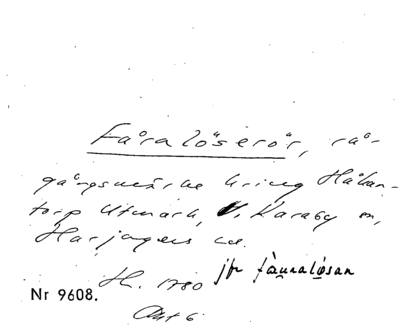 Fåralöserör, rå-
gångsmärke kring Håkan-
torp Utmark, V. Karaby sn,
Harjagers hd.
H. 1780 jfr fåuralösan
Nr 9608.
Akt 6